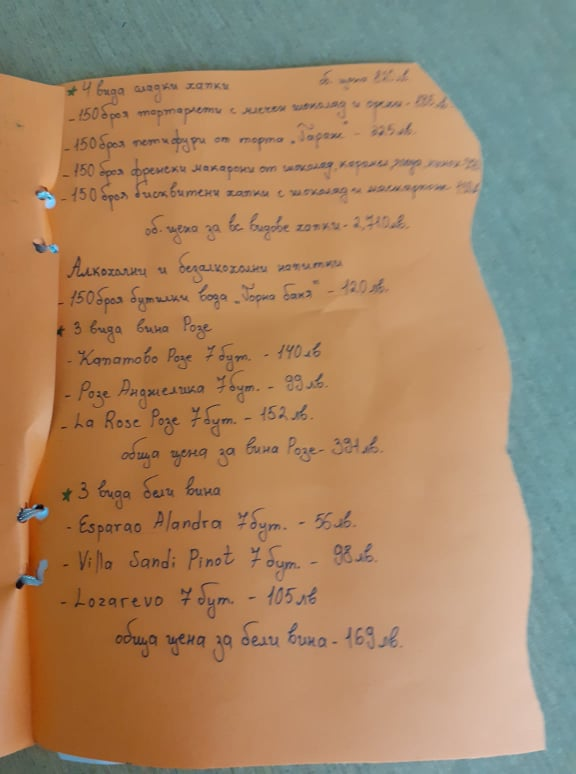 * 4 вида сладки хапки об. цена 820лв.
- 150 броя тарталети с млечен шоколад и орехи -
- 150 броя петифури от торта „Гараж“ - 225лв.
- 150 броя френски макарони от шоколад, карамел, ягода,
- 150 броя бисквитени хапки с шоколад и маскарпоне -
об. цена за вс видове хапки - 2,710лв.
Алкохолни и безалкохолни напитки
- 150 броя бутилки вода „Горна баня“ - 120лв.
* 3 вида вина Розе
- Капатово Розе 7 бут. - 140лв
- Розе Анджелика 7 бут. - 99лв.
- La Rose Розе 7 бут. - 152лв.
обща цена за вина Розе - 391лв.
* 3 вида бели вина
- Esparao Alandra 7 бут. - 56лв.
- Villa Sandi Pinot 7 бут. - 98лв.
- Lozarevo 7 бут. - 105лв
обща цена за бели вина - 169лв.